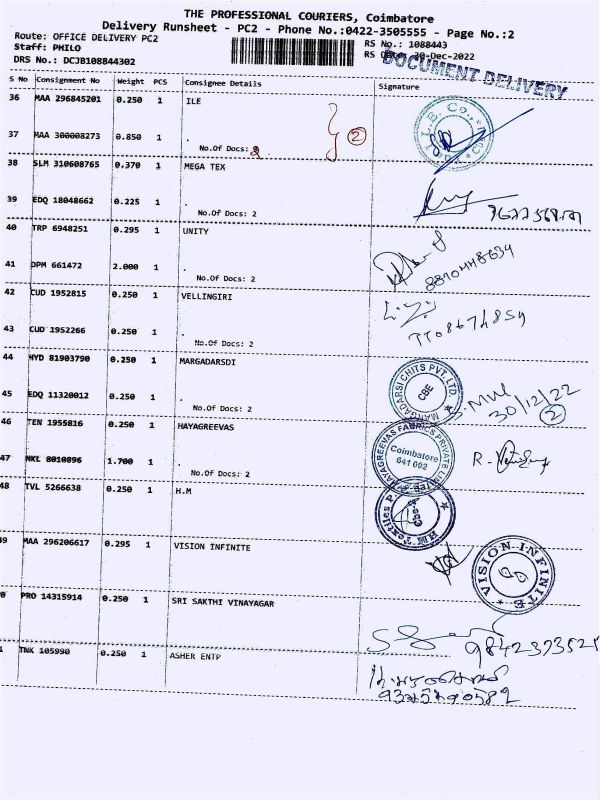 THE PROFESSIONAL COURIERS, Coimbatore
Delivery Runsheet - PC2 - Phone No.:0422-3505555 - Page No.:2
Route: OFFICE DELIVERY PC2
RS No.: 1088443
Staff: PHILO
RS Date: 30-Dec-2022
DRS No.: DCJB108844302
DOCUMENT DELIVERY
S No Consignment No Weight PCS Consignee Details Signature
36 MAA 296845201 0.250 1 ILE
37 MAA 300008273 0.850 1 .
No.Of Docs: 2
2
38 SLM 310608765 0.370 1 MEGA TEX
39 EDQ 18048662 0.225 1 .
No.Of Docs: 2
40 TRP 6948251 0.295 1 UNITY
41 DPM 661472 2.000 1 .
No.Of Docs: 2
8870448634
42 CUD 1952815 0.250 1 VELLINGIRI
43 CUD 1952266 0.250 1 .
No.Of Docs: 2
44 HYD 81903790 0.250 1 MARGADARSDI
MARGADARSI CHITS PVT. LTD.
CBE
45 EDQ 11320012 0.250 1 .
No.Of Docs: 2
30/12/22
2
46 TEN 1955816 0.250 1 HAYAGREEVAS
HAYAGREEVAS FABRICS PRIVATE LIMITED
Coimbatore
641 002
47 NKL 8010896 1.700 1 .
No.Of Docs: 2
48 TVL 5266638 0.250 1 H.M
HM Textiles P
Cbe-2
9 MAA 296206617 0.295 1 VISION INFINITE
VISION INFINITE
0 PRO 14315914 0.250 1 SRI SAKTHI VINAYAGAR
1 TNK 105990 0.250 1 ASHER ENTP